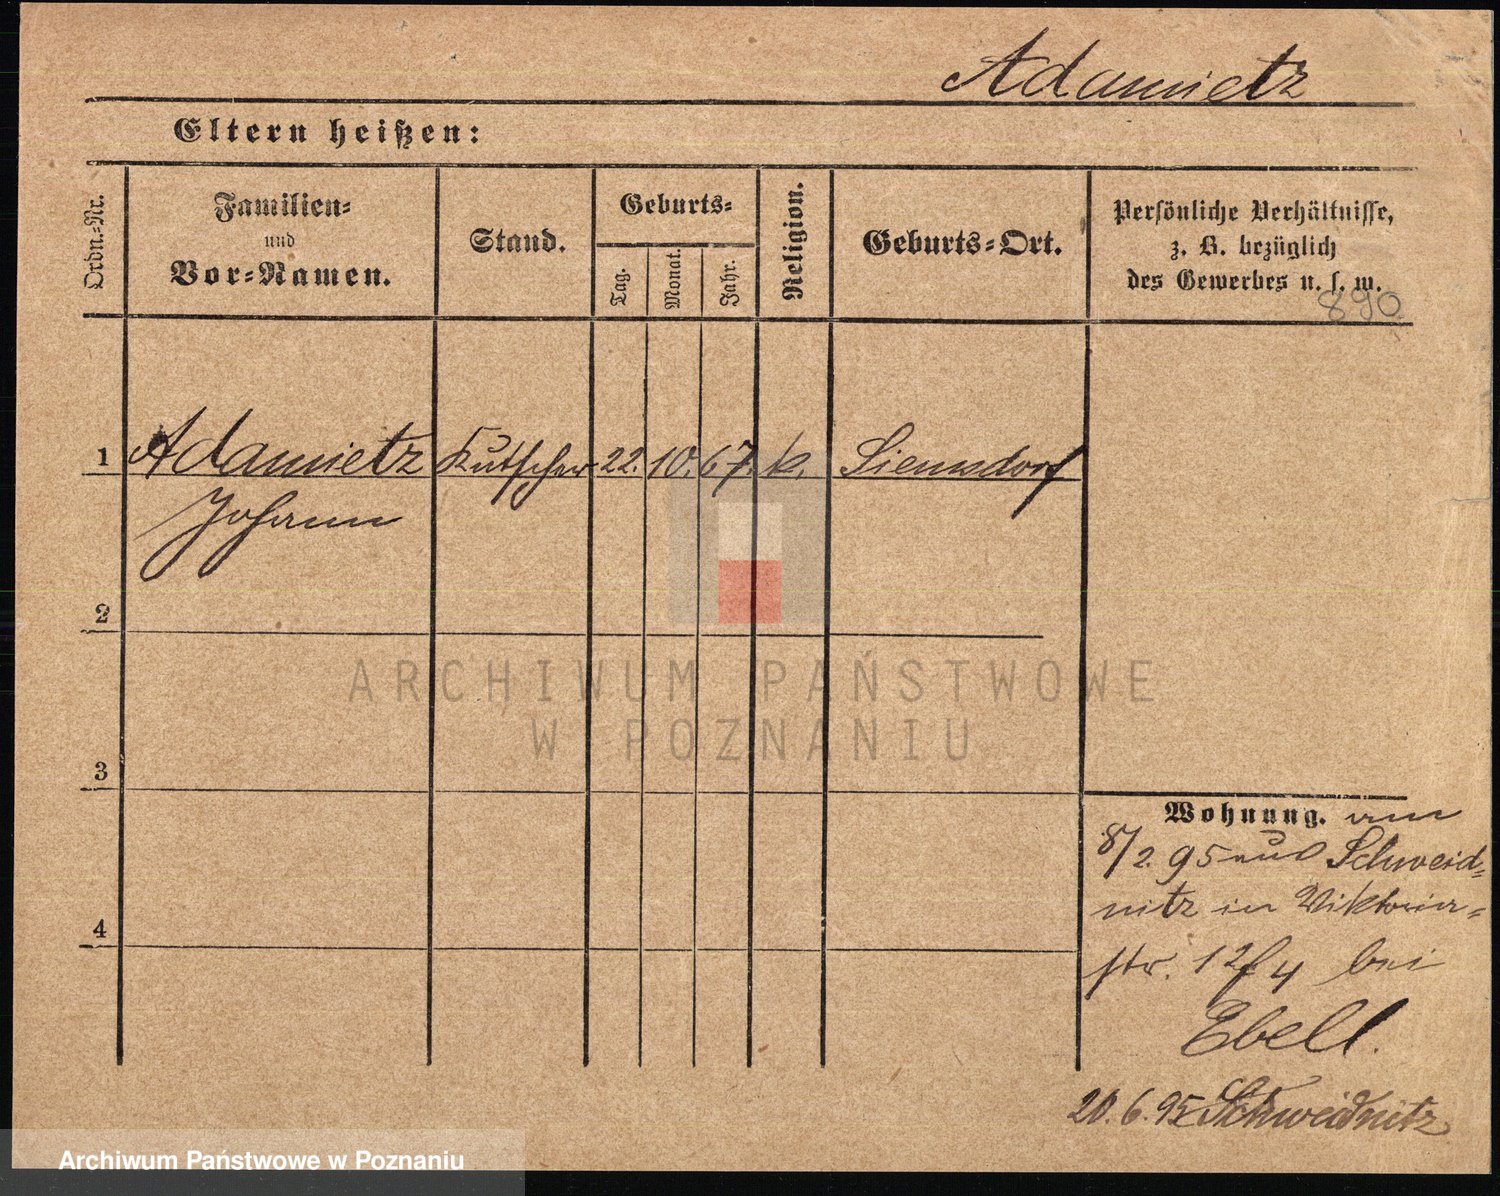 Adamietz
Eltern heißen:
Ordn.-Nr.
Familien-
und
Vor-Namen.
Stand.
Geburts-
Tag.
Monat.
Jahr.
Religion.
Geburts-Ort.
Persönliche Verhältnisse,
z. B. bezüglich
des Gewerbes u. s. w.
890
1 Adamietz Kutscher 22. 10. 67. k.
Johann
2
3
4
Wohnung. am
8/2. 95 aus Schweid-
nitz in Viktoria-
str. 12/4 bei
Ebell.
20. 6. 95 Schweidnitz
ARCHIWUM PAŃSTWOWE
W POZNANIU
Archiwum Państwowe w Poznaniu